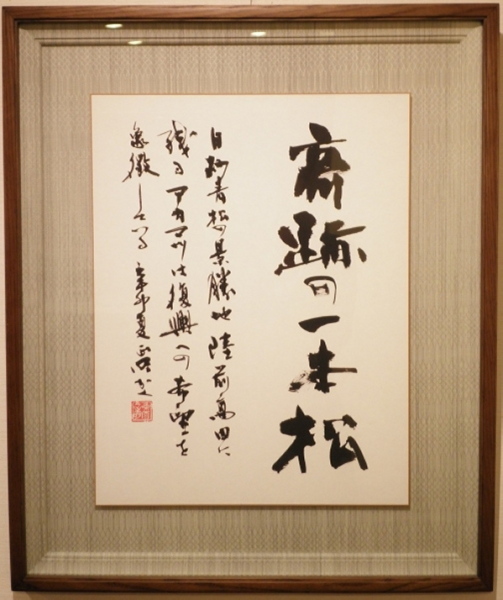 奇跡の一本松
白砂青松景勝地 陸前高田に
残るアカマツは復興への希望を
象徴している 辛卯夏